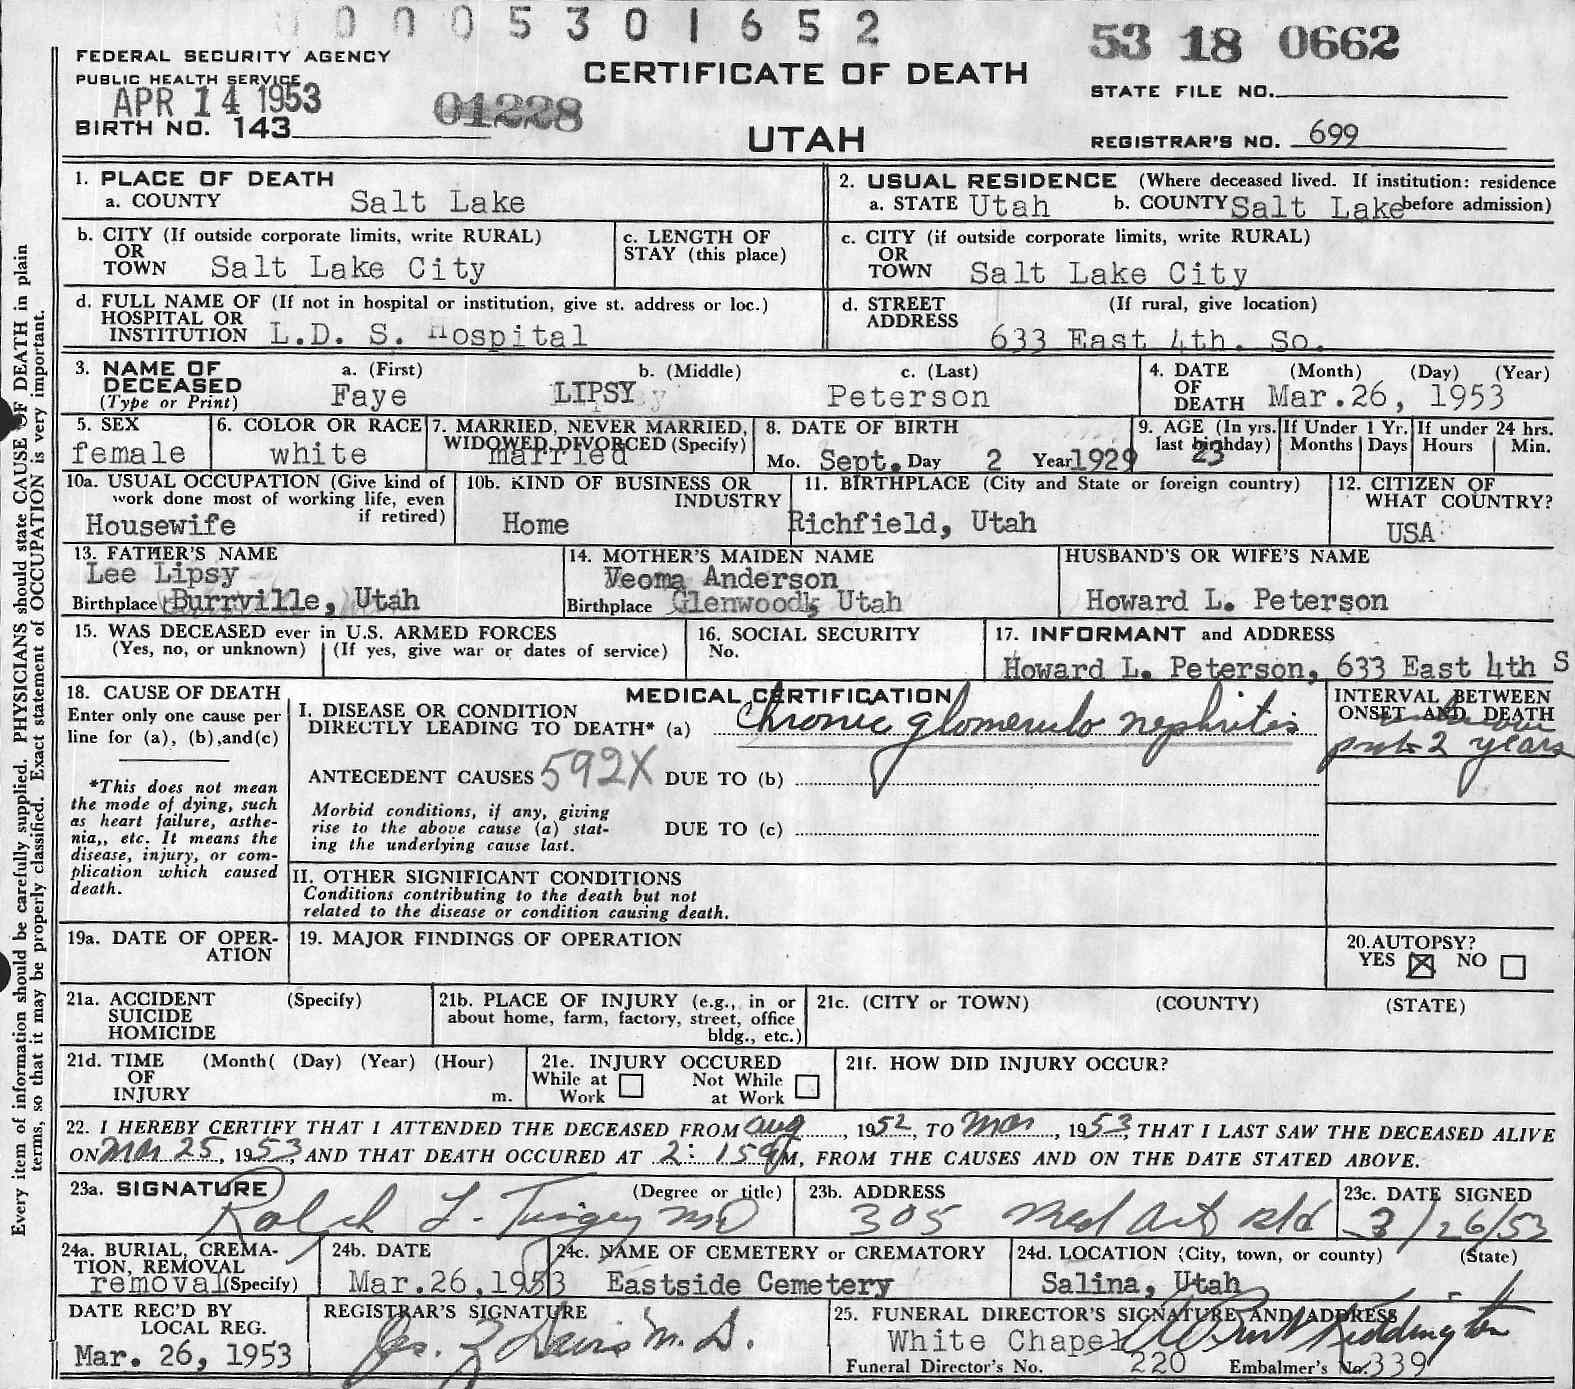 0005301652
53 18 0662
FEDERAL SECURITY AGENCY
PUBLIC HEALTH SERVICE
APR 14 1953
01228
BIRTH NO. 143
CERTIFICATE OF DEATH
UTAH
STATE FILE NO.
REGISTRAR'S NO. 699
Every item of information should be carefully supplied. PHYSICIANS should state CAUSE OF DEATH in plain
terms, so that it may be properly classified. Exact statement of OCCUPATION is very important.
1. PLACE OF DEATH
a. COUNTY Salt Lake
2. USUAL RESIDENCE (Where deceased lived. If institution: residence
a. STATE Utah b. COUNTY Salt Lake before admission)
b. CITY (If outside corporate limits, write RURAL)
OR
TOWN Salt Lake City
c. LENGTH OF
STAY (this place)
c. CITY (if outside corporate limits, write RURAL)
OR
TOWN Salt Lake City
d. FULL NAME OF (If not in hospital or institution, give st. address or loc.)
HOSPITAL OR
INSTITUTION L.D. S. Hospital
d. STREET (If rural, give location)
ADDRESS
633 East 4th. So.
3. NAME OF a. (First) b. (Middle) c. (Last)
DECEASED
(Type or Print) Faye LIPSY Peterson
4. DATE (Month) (Day) (Year)
OF
DEATH Mar.26, 1953
5. SEX
female
6. COLOR OR RACE
white
7. MARRIED, NEVER MARRIED,
WIDOWED, DIVORCED (Specify)
married
8. DATE OF BIRTH
Mo. Sept. Day 2 Year 1929
9. AGE (In yrs.
last birthday)
23
If Under 1 Yr.
Months Days
If under 24 hrs.
Hours Min.
10a. USUAL OCCUPATION (Give kind of
work done most of working life, even
if retired)
Housewife
10b. KIND OF BUSINESS OR
INDUSTRY
Home
11. BIRTHPLACE (City and State or foreign country)
Richfield, Utah
12. CITIZEN OF
WHAT COUNTRY?
USA
13. FATHER'S NAME
Lee Lipsy
Birthplace Burrville, Utah
14. MOTHER'S MAIDEN NAME
Veoma Anderson
Birthplace Glenwood, Utah
HUSBAND'S OR WIFE'S NAME
Howard L. Peterson
15. WAS DECEASED ever in U.S. ARMED FORCES
(Yes, no, or unknown) (If yes, give war or dates of service)
16. SOCIAL SECURITY
No.
17. INFORMANT and ADDRESS
Howard L. Peterson, 633 East 4th S
18. CAUSE OF DEATH
Enter only one cause per
line for (a), (b),and(c)
*This does not mean
the mode of dying, such
as heart failure, asthe-
nia,, etc. It means the
disease, injury, or com-
plication which caused
death.
MEDICAL CERTIFICATION
I. DISEASE OR CONDITION
DIRECTLY LEADING TO DEATH* (a) chronic glomerulo nephritis
ANTECEDENT CAUSES 592X DUE TO (b)
Morbid conditions, if any, giving
rise to the above cause (a) stat-
ing the underlying cause last.
DUE TO (c)
INTERVAL BETWEEN
ONSET AND DEATH
2 years
II. OTHER SIGNIFICANT CONDITIONS
Conditions contributing to the death but not
related to the disease or condition causing death.
19a. DATE OF OPER-
ATION
19. MAJOR FINDINGS OF OPERATION
20.AUTOPSY?
YES ☒ NO ☐
21a. ACCIDENT (Specify)
SUICIDE
HOMICIDE
21b. PLACE OF INJURY (e.g., in or
about home, farm, factory, street, office
bldg., etc.)
21c. (CITY or TOWN) (COUNTY) (STATE)
21d. TIME (Month( (Day) (Year) (Hour)
OF
INJURY m.
21e. INJURY OCCURED
While at ☐ Not While ☐
Work at Work
21f. HOW DID INJURY OCCUR?
22. I HEREBY CERTIFY THAT I ATTENDED THE DECEASED FROM Aug, 1952, TO Mar, 1953, THAT I LAST SAW THE DECEASED ALIVE
ON Mar 25, 1953, AND THAT DEATH OCCURED AT 2:15 M, FROM THE CAUSES AND ON THE DATE STATED ABOVE.
23a. SIGNATURE (Degree or title)
Ralph L. MD
23b. ADDRESS
305 Med Arts Bld
23c. DATE SIGNED
3/26/53
24a. BURIAL, CREMA-
TION, REMOVAL
removal (Specify)
24b. DATE
Mar.26,1953
24c. NAME OF CEMETERY or CREMATORY
Eastside Cemetery
24d. LOCATION (City, town, or county) (State)
Salina, Utah
DATE REC'D BY
LOCAL REG.
Mar. 26, 1953
REGISTRAR'S SIGNATURE
Jas. Z Davis M.D.
25. FUNERAL DIRECTOR'S SIGNATURE AND ADDRESS
White Chapel
Funeral Director's No. 220 Embalmer's No. 339